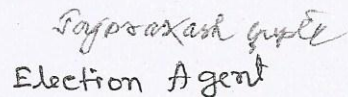 Jayprakash Gupta
Election Agent